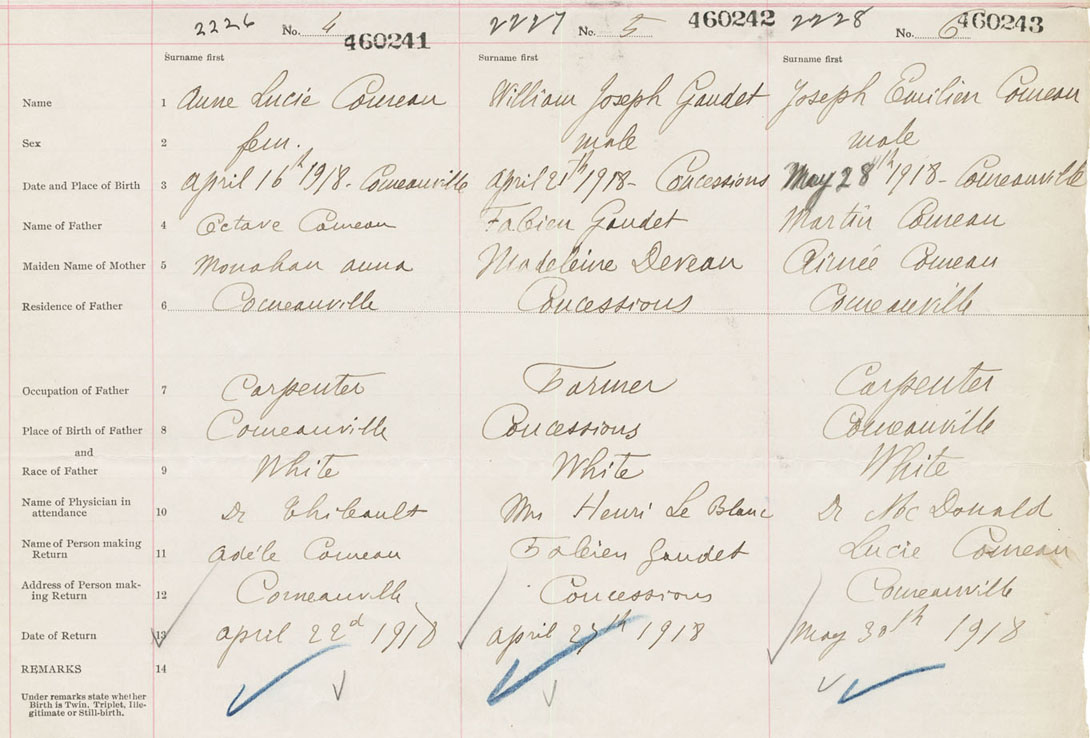 2226 No. 4 460241 2227 No. 5 460242 2228 No. 6 460243
Surname first Surname first Surname first
Name 1 Anne Lucie Comeau William Joseph Gaudet Joseph Emilien Comeau
Sex 2 fem. male male
Date and Place of Birth 3 April 16th 1918 - Comeauville April 21th 1918 - Concessions May 28th 1918 - Comeauville
Name of Father 4 Octave Comeau Fabien Gaudet Martin Comeau
Maiden Name of Mother 5 Monahan anna Madeleine Deveau Aimée Comeau
Residence of Father 6 Comeauville Concessions Comeauville
Occupation of Father 7 Carpenter Farmer Carpenter
Place of Birth of Father 8 Comeauville Concessions Comeauville
and
Race of Father 9 White White White
Name of Physician in
attendance 10 Dr Thibault Mrs Henri Le Blanc Dr McDonald
Name of Person making
Return 11 Adéle Comeau Fabien Gaudet Lucie Comeau
Address of Person mak-
ing Return 12 Comeauville Concessions Comeauville
Date of Return 13 April 22d 1918 April 1918 May 30th 1918
REMARKS 14
Under remarks state whether
Birth is Twin, Triplet, Ille-
gitimate or Still-birth.